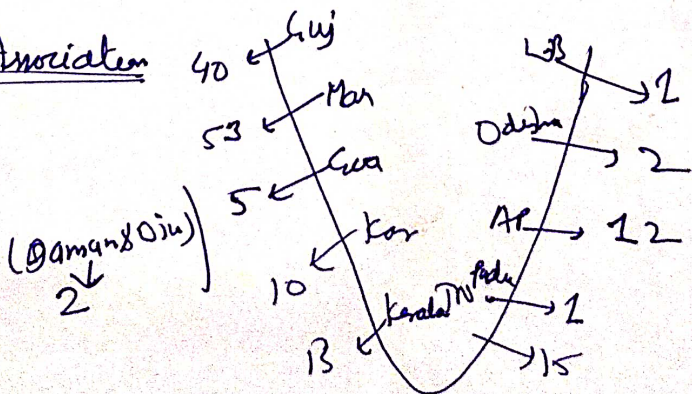 Association
40 Guj
53 Mah
5 Goa
(Daman & Diu)
2
10 Kar
13 Kerala
WB 1
Odisha 2
AP 12
Pudu 1
TN 15